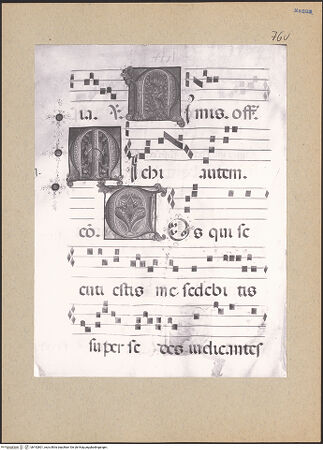 76v
ia. ℣. Nimis. off.
Michi autem.
cō. Uos qui se
cuti estis me sedebitis
super sedes iudicantes